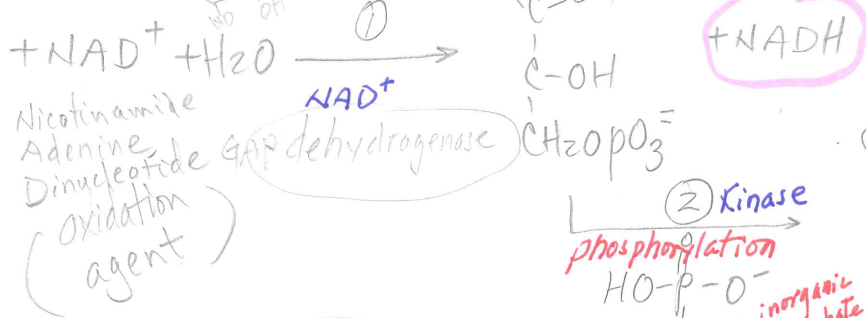 +NAD+ +H2O ①
NAD+
Nicotinamide
Adenine
Dinucleotide
(oxidation
agent)
GAP dehydrogenase
C-OH
CH2OPO3=
+NADH
② Kinase
phosphorylation
O
HO-P-O-
inorganic